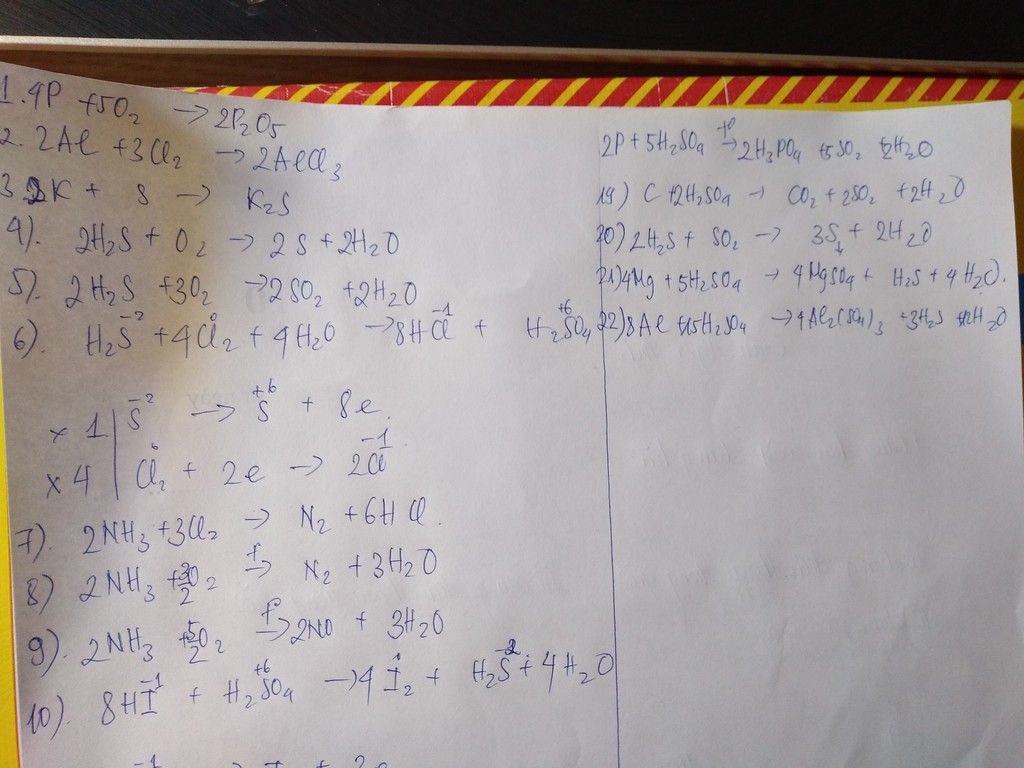 1. 4P + 5O2 → 2P2O5
2. 2Al + 3Cl2 → 2AlCl3
3. 2K + S → K2S
4). 2H2S + O2 → 2S + 2H2O
5). 2H2S + 3O2 → 2SO2 + 2H2O
6). H2S⁻² + 4Cl⁰2 + 4H2O → 8HCl⁻¹ + H2S⁺⁶O4
× 1 | S⁻² → S⁺⁶ + 8e.
× 4 | Cl⁰2 + 2e → 2Cl⁻¹
7). 2NH3 + 3Cl2 → N2 + 6HCl.
8) 2NH3 + 3/2O2 →t° N2 + 3H2O
9). 2NH3 + 5/2O2 →t° 2NO + 3H2O
10). 8HI⁻¹ + H2S⁺⁶O4 → 4I⁰2 + H2S⁻² + 4H2O
2P + 5H2SO4 →t° 2H3PO4 + 5SO2 + 2H2O
19) C + 2H2SO4 → CO2 + 2SO2 + 2H2O
20) 2H2S + SO2 → 3S↓ + 2H2O
21) 4Mg + 5H2SO4 → 4MgSO4 + H2S + 4H2O.
22) 8Al + 15H2SO4 → 4Al2(SO4)3 + 3H2S + 12H2O